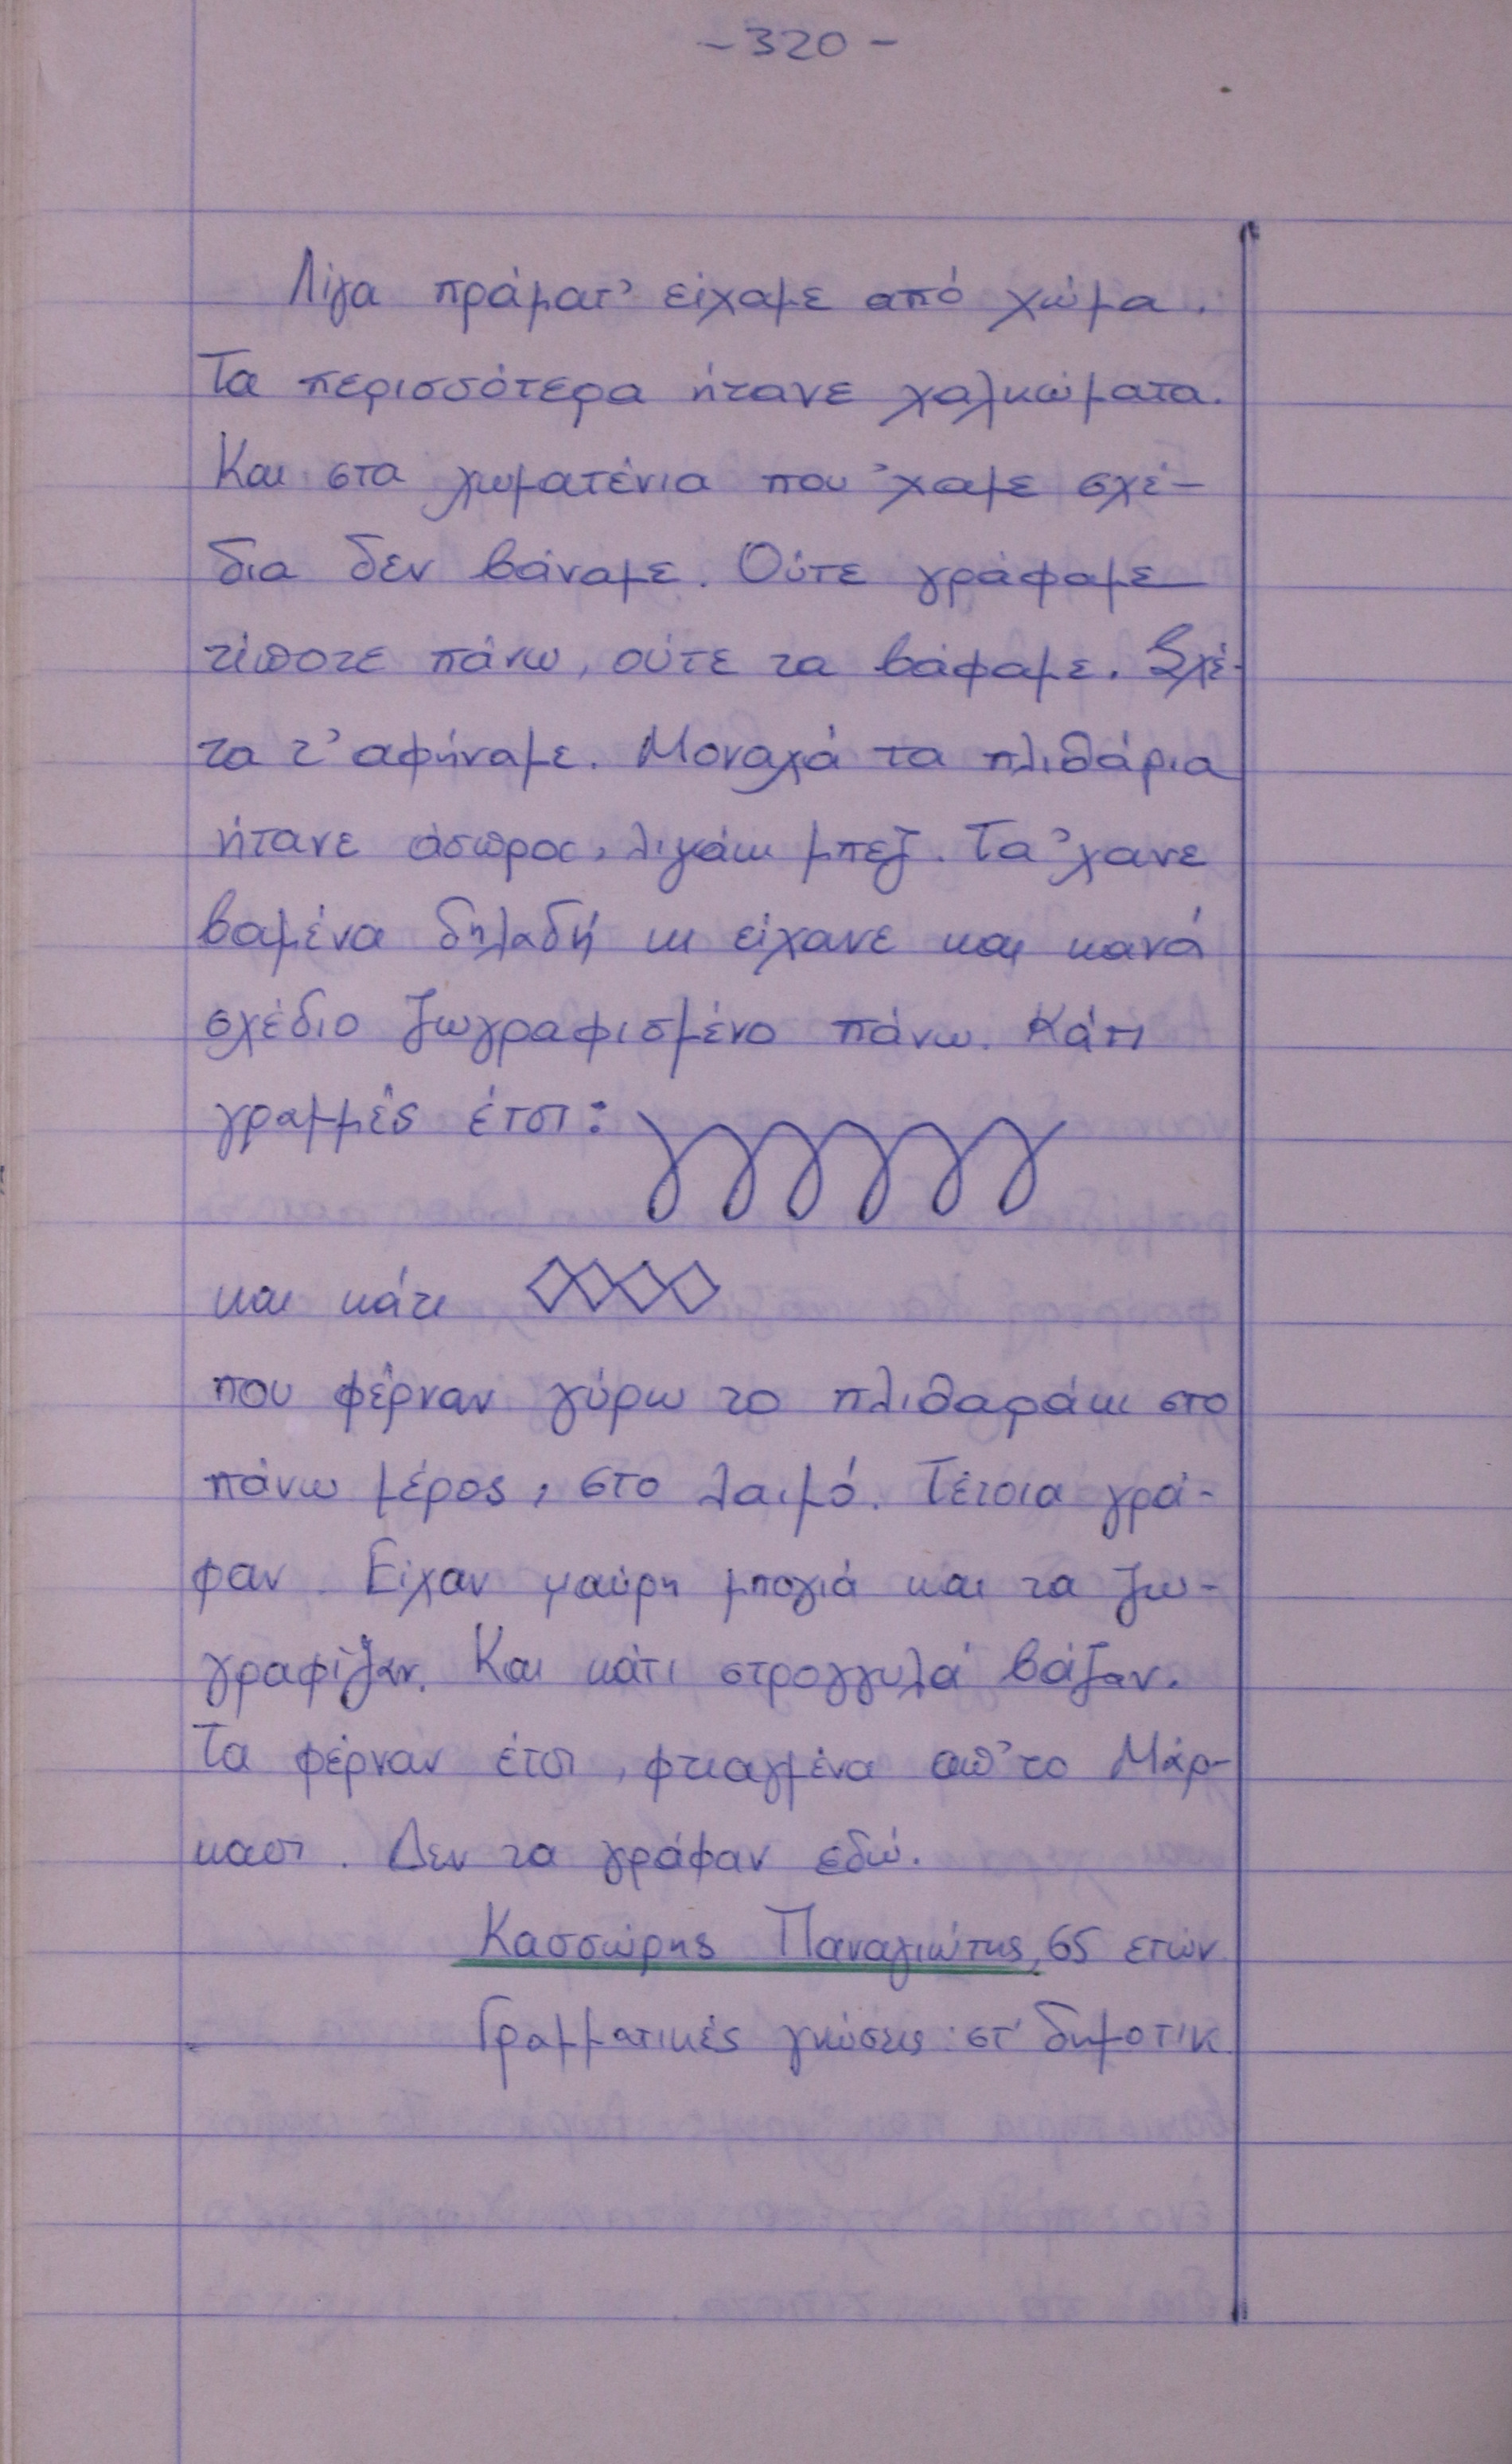 -320-
Λίγα πράματ' είχαμε από χώμα.
Τα περισσότερα ήτανε χαλκώματα.
Και στα χωματένια που 'χαμε σχέ-
δια δεν βάναμε. Ούτε γράφαμε
τίποτε πάνω, ούτε τα βάφαμε. Σκέ-
τα τ' αφήναμε. Μοναχά τα πλιθάρια
ήτανε άσπρα, λιγάκι μπεζ. Τα 'χανε
βαμένα δηλαδή κι είχανε και κανά
σχέδιο ζωγραφισμένο πάνω. Κάτι
γραμμές έτσι:
και κάτι
που φέρναν γύρω το πλιθαράκι στο
πάνω μέρος, στο λαιμό. Τέτοια γρά-
φαν. Είχαν μαύρη μπογιά και τα ζω-
γραφίζαν. Και κάτι στρογγυλά βάζαν.
Τα φέρναν έτσι, φτιαγμένα απ' το Μάρ-
κασι. Δεν τα γράφαν εδώ.
Κασσώρης Παναγιώτης, 65 ετών
Γραμματικές γνώσεις: στ' δημοτικ.